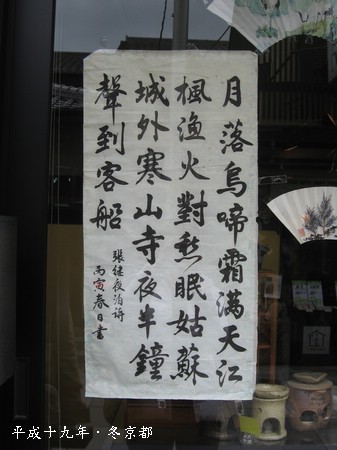 月落烏啼霜滿天江
楓渔火對愁眠姑蘇
城外寒山寺夜半鐘
聲到客船
張继夜泊詩
丙寅春日書
平成十九年·冬京都